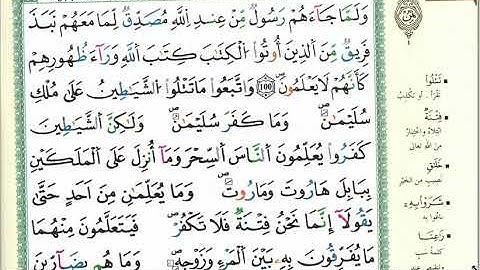 وَلَمَّا جَآءَهُمْ رَسُولٌ مِّنْ عِندِ ٱللَّهِ مُصَدِّقٌ لِّمَا مَعَهُمْ نَبَذَ
فَرِيقٌ مِّنَ ٱلَّذِينَ أُوتُوا۟ ٱلْكِتَٰبَ كِتَٰبَ ٱللَّهِ وَرَآءَ ظُهُورِهِمْ
كَأَنَّهُمْ لَا يَعْلَمُونَ ١٠٠ وَٱتَّبَعُوا۟ مَا تَتْلُوا۟ ٱلشَّيَٰطِينُ عَلَىٰ مُلْكِ
سُلَيْمَٰنَ ۖ وَمَا كَفَرَ سُلَيْمَٰنُ ۖ وَلَٰكِنَّ ٱلشَّيَٰطِينَ
كَفَرُوا۟ يُعَلِّمُونَ ٱلنَّاسَ ٱلسِّحْرَ وَمَآ أُنزِلَ عَلَى ٱلْمَلَكَيْنِ
بِبَابِلَ هَٰرُوتَ وَمَٰرُوتَ ۖ وَمَا يُعَلِّمَانِ مِنْ أَحَدٍ حَتَّىٰ
يَقُولَآ إِنَّمَا نَحْنُ فِتْنَةٌ فَلَا تَكْفُرْ ۖ فَيَتَعَلَّمُونَ مِنْهُمَا
مَا يُفَرِّقُونَ بِهِۦ بَيْنَ ٱلْمَرْءِ وَزَوْجِهِۦ ۖ وَمَا هُم بِضَآرِّينَ
تَتْلُوا
تَقْرَأُ .. أو تكذب
فِتْنَةٌ
ابتلاء واختبار
من الله تعالى
خَلَٰقٍ
نصيب من الخير
شَرَوْا بِهِ
رَاعِنَا
كلمة سب